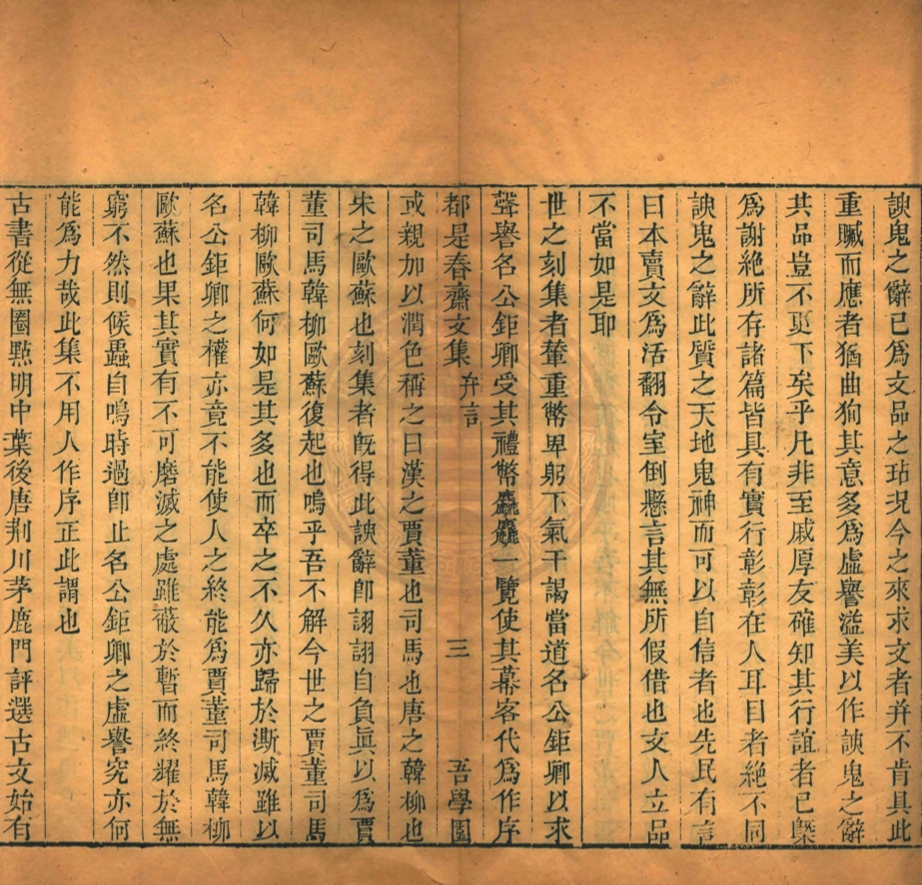 諛鬼之辭已爲文品之玷況今之來求文者并不肯具此
重贓而應者猶曲狥其意多爲虛譽溢美以作諛鬼之辭
其品豈不更下矣乎凡非至戚厚友確知其行誼者已槩
爲謝絶所存諸篇皆具有實行彰彰在人耳目者絶不同
諛鬼之辭此質之天地鬼神而可以自信者也先民有言
曰本賣文爲活翻令室倒懸言其無所假借也文人立品
不當如是耶
世之刻集者輦重幣卑躬下氣干謁當道名公鉅卿以求
聲譽名公鉅卿受其禮幣麤麤一覽使其幕客代爲作序
都是春齋文集 弁言 三 吾學園
或親加以潤色稱之曰漢之賈董也司馬也唐之韓柳也
宋之歐蘇也刻集者旣得此諛辭卽詡詡自負眞以爲賈
董司馬韓柳歐蘇復起也嗚乎吾不解今世之賈董司馬
韓柳歐蘇何如是其多也而卒之不久亦歸於澌滅雖以
名公鉅卿之權亦竟不能使人之終能爲賈董司馬韓柳
歐蘇也果其實有不可磨滅之處雖蔽於暫而終耀於無
窮不然則候蟲自鳴時過卽止名公鉅卿之虛譽究亦何
能爲力哉此集不用人作序正此謂也
古書從無圈點明中葉後唐荆川茅鹿門評選古文始有